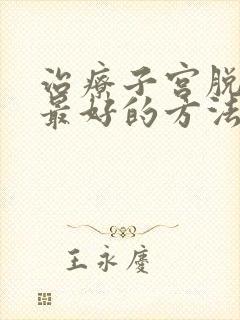 治療子宮脱
最好的方法
王永慶